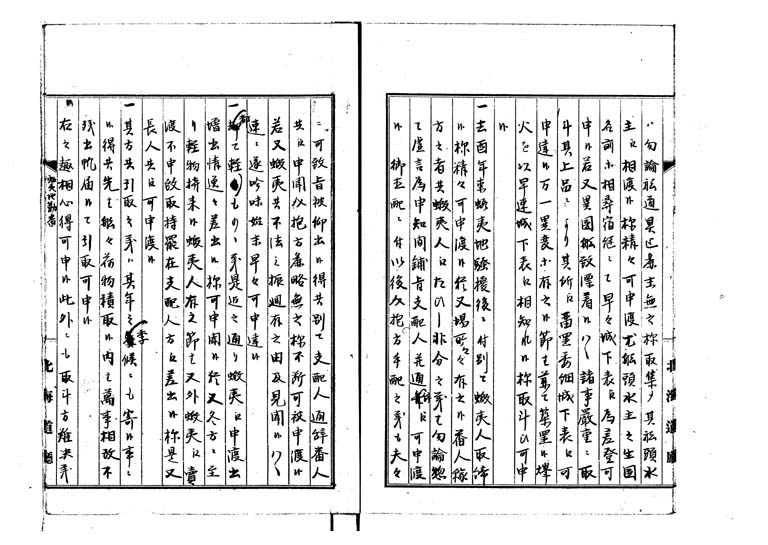 ハ勿論私道具迄番主無之様取集メ其船頭水
主江相渡候様精々可申渡尤船頭水主之生国
名前等相尋宿送ニて早々城下表江為差登可
申候若又異国船致漂着候ハヽ諸事厳重ニ取
斗其上品ニより其所江番置委細城下表江可
申達候万一異変等有之候節者兼て築置候烽
火を以早速城下表江相知れ候様取斗ひ可申
候
一去酉年東蝦夷地騒擾後ニ付別て蝦夷人取締
候様精々可申渡候将又場所々々有之候番人稼
方之者共蝦夷人江たひし非分之義者勿論惣
て虚言為申知間鋪旨支配人并通詞江可申渡
候御支配ニ付以後及抱方手配之義も夫々
ニ可致旨被仰出候得共別て支配人通辞番人
共江申聞及抱方麁略無之様不所可被申渡候
若又蝦夷共不法之振廻有之由及見聞候ハヽ
速ニ遂吟味始末早々可申達候
一都て軽もの之義是迄之通り蝦夷江申渡出
増出情速々差出候様可申聞候将又冬方ニ至
り軽物持来候蝦夷人有之節も又外蝦夷江賣
渡不申致取持罷在支配人方江差出候様是又
長人共江可申渡候
一其方共引取之義ハ其年之季候ニも寄候事ニ
候得共先者船々荷物積取候内者萬事相改不
残出帆届候て引取可申候
右之趣相心得可申候此外ニも取斗方難決義
北海道廳
北海道廳